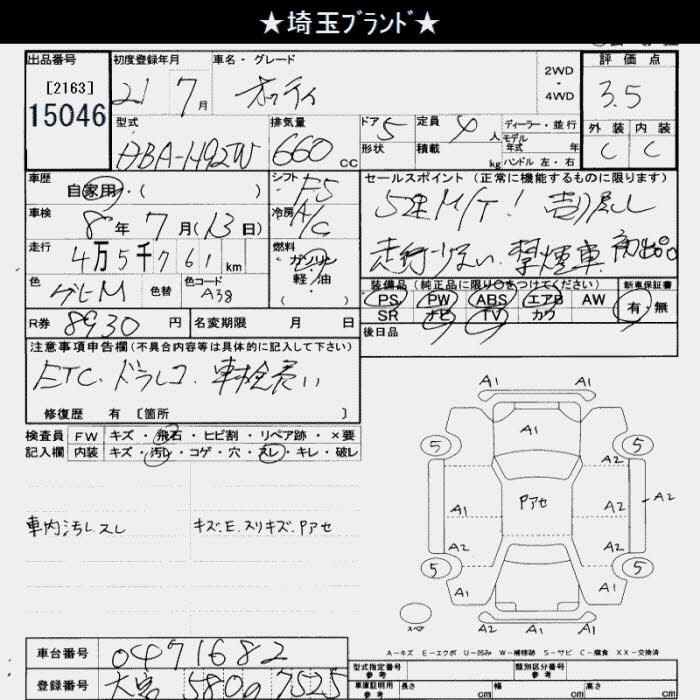 ★埼玉ブランド★
出品番号
[2163]
15046
初度登録年月
21 7月
車名・グレード
オッティ
2WD
・
4WD
評価点
3.5
外装 内装
C C
型式
DBA-H92W
排気量
660 cc
ドア 5
形状
定員 4 人
積載 kg
ディーラー・並行
モデル
年式 年
ハンドル 左・右
車歴
自家用・( )
シフト F5
車検
8年 7月(13日)
冷房 A/C
走行
4万5千761km
燃料
ガソリン
軽・油
( )
色
グレM
色替
色コード
A38
R券 8930 円
名変期限 月 日
セールスポイント (正常に機能するものに限ります)
5速M/T! 売り尽し
走行少ない、禁煙車 初出品
装備品 (純正品に限り○をつけてください)
PS PW ABS エアB AW
SR ナビ TV カワ
新車保証書
有・無
後日品
注意事項申告欄(不具合内容等は具体的に記入して下さい)
ETC、ドラレコ、車検長い
修復歴 有 [箇所 ]
検査員 FW キズ・飛石・ヒビ割・リペア跡・×要
記入欄 内装 キズ・汚レ・コゲ・穴・スレ・キレ・破レ
車内汚レスレ
キズ.E.スリキズ.Pアセ
A1 A1
A1
5 5
A2
Pアセ
A1 A2 A2
A2 A2
5 5
A1 A1
スペア
A2 A1 A1
A-キズ E-エクボ U-凹み W-補修跡 S-サビ C-腐食 XX-交換済
車台番号 0471682
登録番号 大宮 580 の 7525
型式指定番号
参考
類別区分番号
参考
車庫証明用
参考
長さ cm
幅 cm
高さ cm